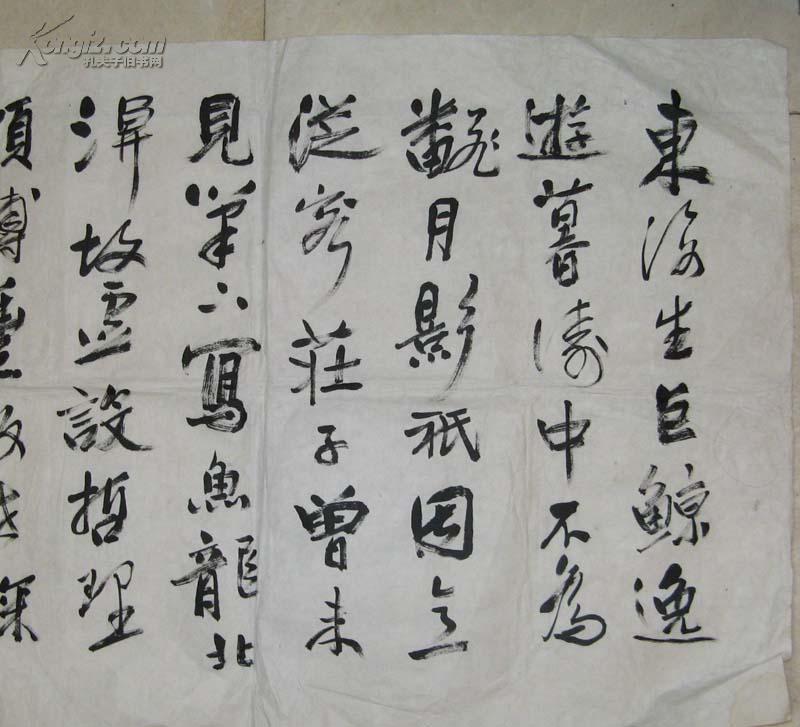 Kongfz.com
孔夫子旧书网
東海生巨鯨逸
遊暮濤中不為
翻月影祇因意
從容莊子曾未
見筆下寫魚龍北
溟故虛設哲理